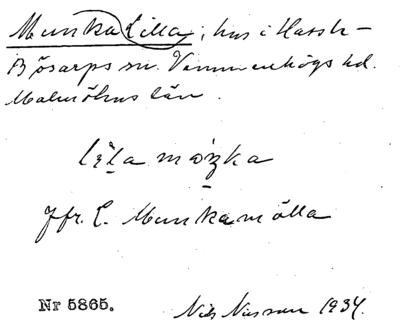 Munka Lilla; hus i Hassle-
Bösarps sn. Vemmenhögs hd.
Malmöhus län.
Jfr. L. Munkamölla
Nr 5865.
Nils Nilsson 1934.